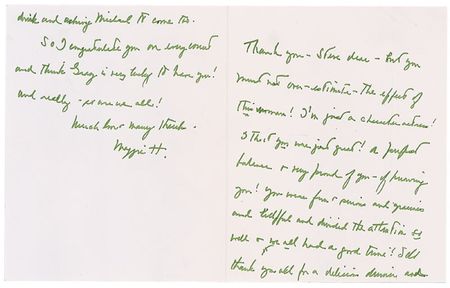 Thank you – Steve dear – but you
must not over-estimate – The effect of
this woman! I'm just a character actress!
& that you were just great! A perfect
balance & very proud of you – of knowing
you! you were fun & serious and gracious
and and divided the attention so
well & we all had a good time!
thank you all for a delicious dinner and
drink and asking Michael to come to.
So I congratulate you on every count
and think is very lucky to have you!
and really – so are we all!
Much love many thanks.
H.